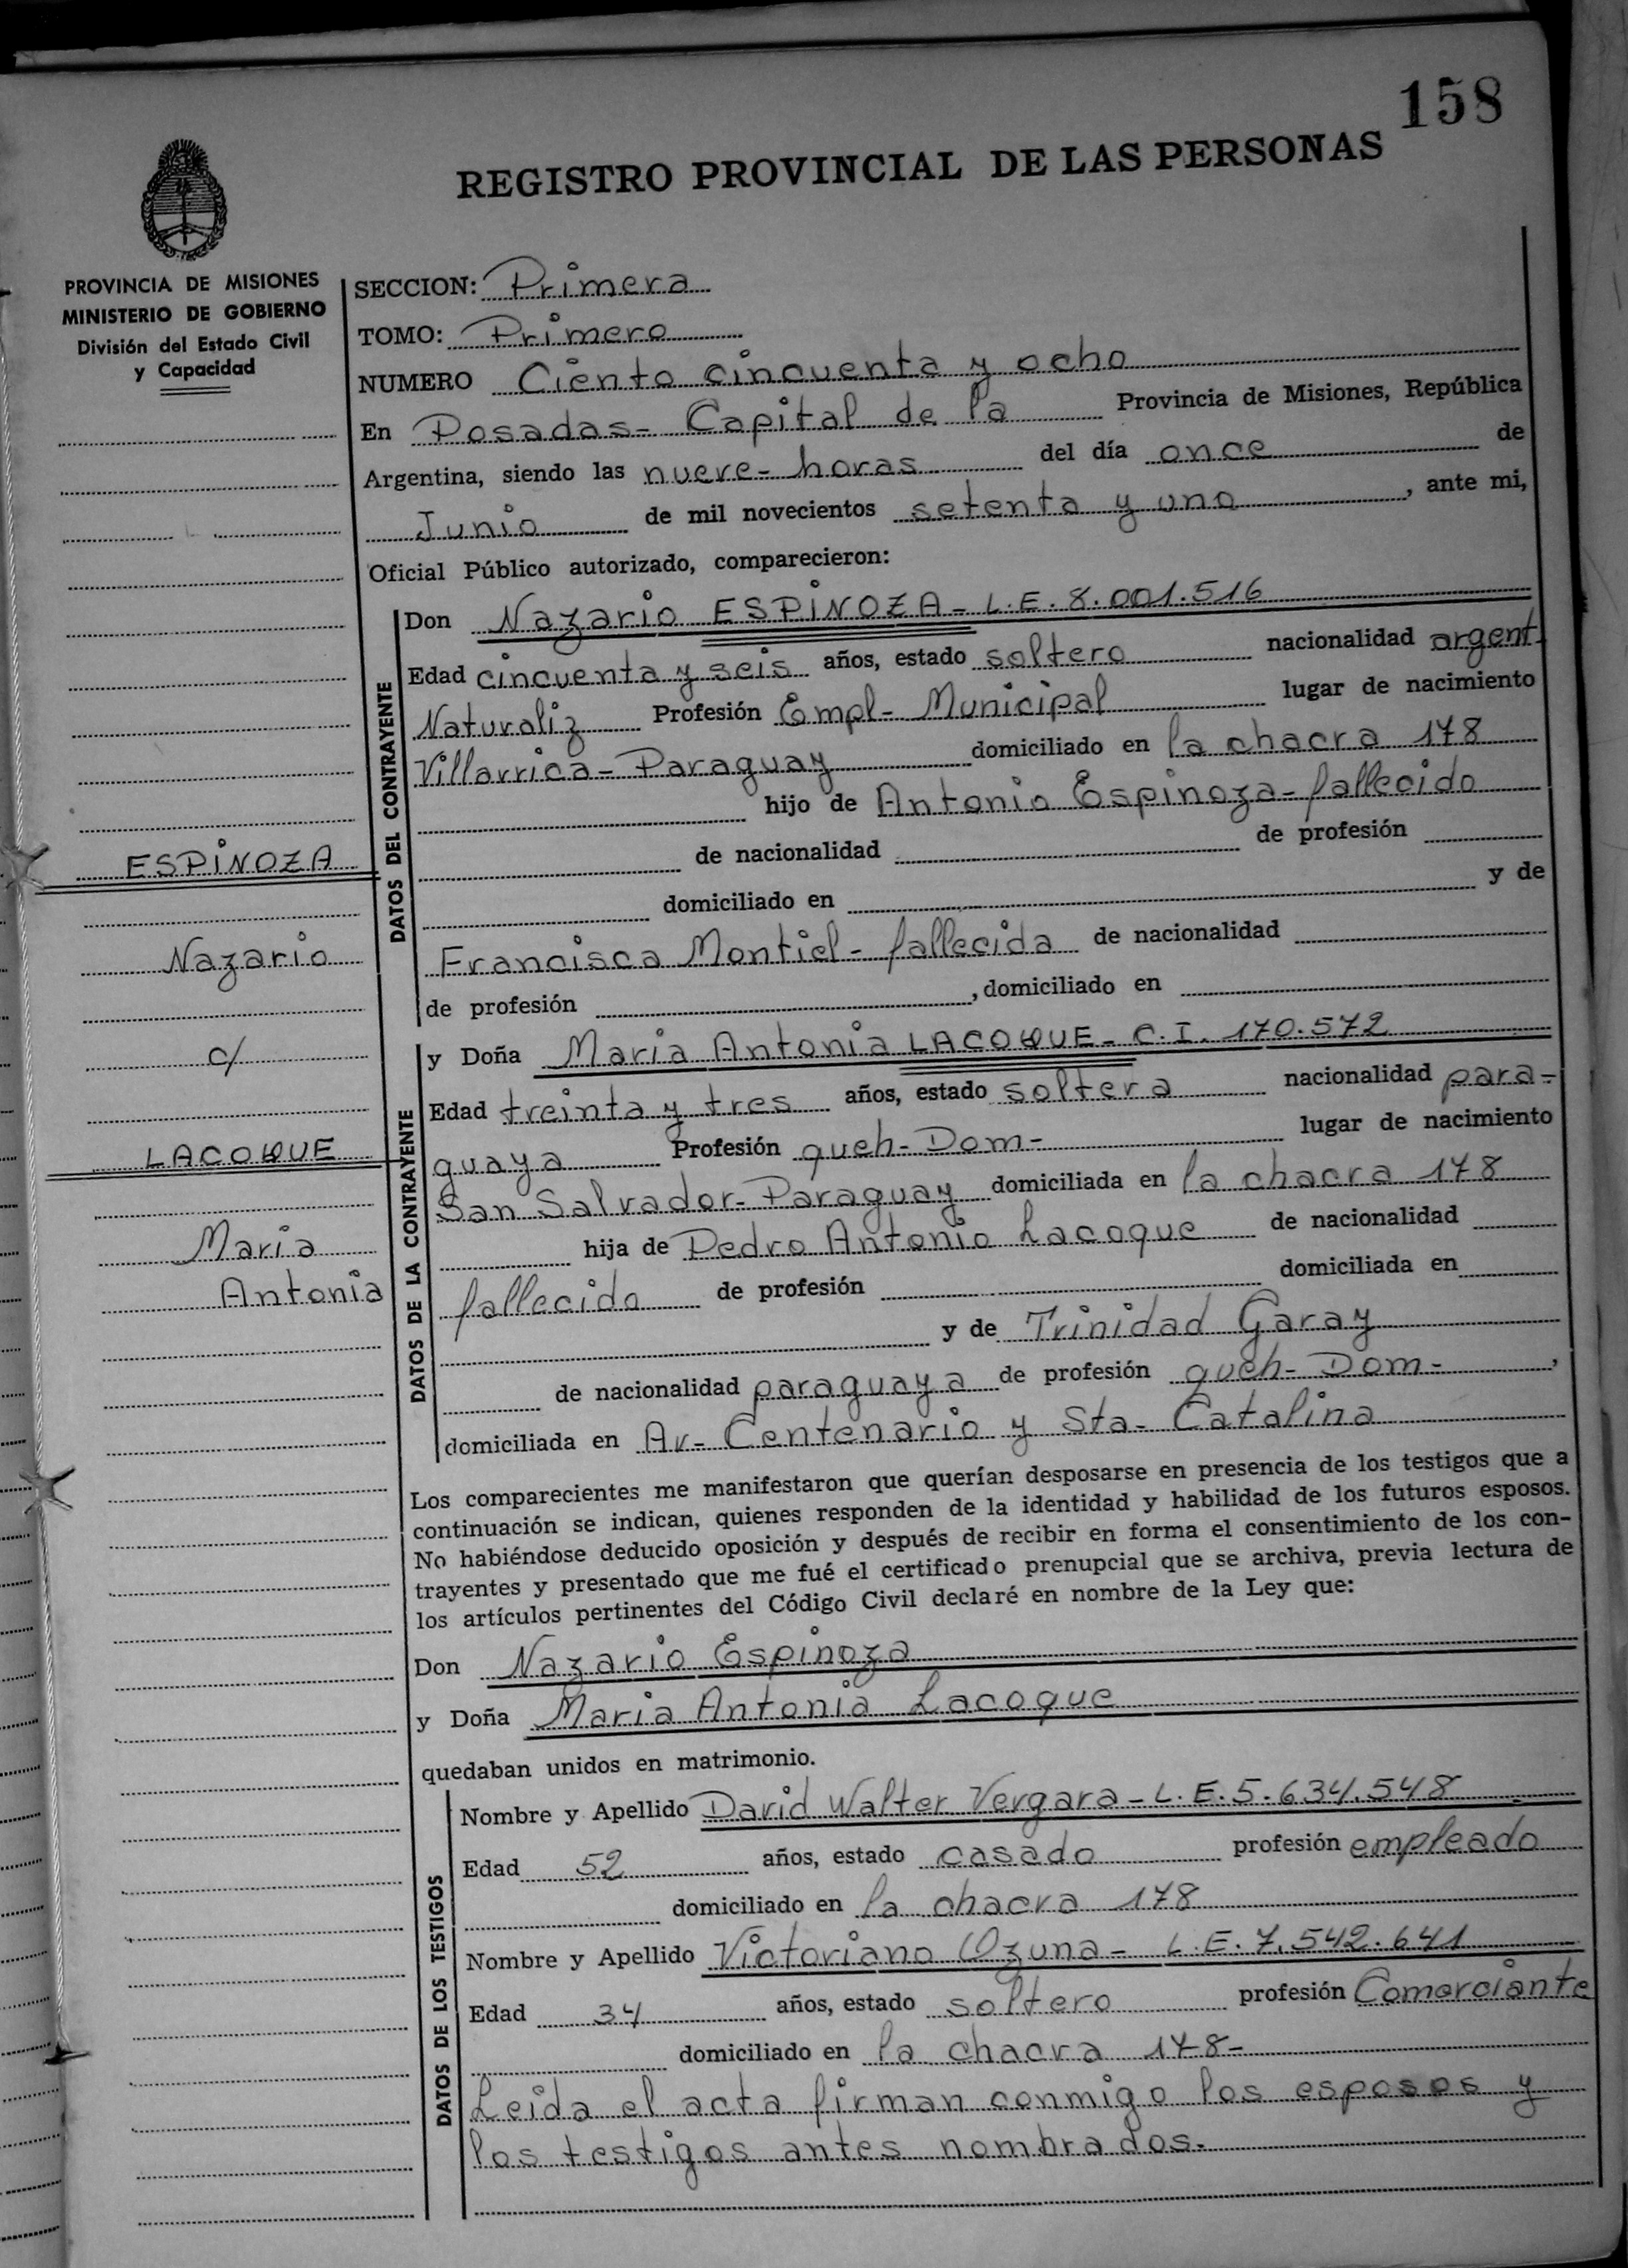 158
REGISTRO PROVINCIAL DE LAS PERSONAS
PROVINCIA DE MISIONES
MINISTERIO DE GOBIERNO
División del Estado Civil
y Capacidad
ESPINOZA
Nazario
c/
LACOQUE
Maria
Antonia
SECCION: Primera
TOMO: Primero
NUMERO Ciento cincuenta y ocho
En Posadas- Capital de la Provincia de Misiones, República
Argentina, siendo las nueve- horas del día once de
Junio de mil novecientos setenta y uno, ante mi,
Oficial Público autorizado, comparecieron:
DATOS DEL CONTRAYENTE
Don Nazario ESPINOZA- L.E. 8.001.516
Edad cincuenta y seis años, estado soltero nacionalidad argent.
Naturaliz Profesión Empl- Municipal lugar de nacimiento
Villarrica- Paraguay domiciliado en la chacra 178
hijo de Antonio Espinoza- fallecido
de nacionalidad de profesión
domiciliado en y de
Francisca Montiel- fallecida de nacionalidad
de profesión , domiciliado en
DATOS DE LA CONTRAYENTE
y Doña Maria Antonia LACOQUE- C.I. 170.572
Edad treinta y tres años, estado soltera nacionalidad para-
guaya Profesión queh- Dom- lugar de nacimiento
San Salvador- Paraguay domiciliada en la chacra 178
hija de Pedro Antonio Lacoque de nacionalidad
fallecido de profesión domiciliada en
y de Trinidad Garay
de nacionalidad paraguaya de profesión queh- Dom- ,
domiciliada en Av- Centenario y Sta- Catalina
Los comparecientes me manifestaron que querían desposarse en presencia de los testigos que a
continuación se indican, quienes responden de la identidad y habilidad de los futuros esposos.
No habiéndose deducido oposición y después de recibir en forma el consentimiento de los con-
trayentes y presentado que me fué el certificado prenupcial que se archiva, previa lectura de
los artículos pertinentes del Código Civil declaré en nombre de la Ley que:
Don Nazario Espinoza
y Doña Maria Antonia Lacoque
quedaban unidos en matrimonio.
DATOS DE LOS TESTIGOS
Nombre y Apellido David Walter Vergara- L.E. 5.634.548
Edad 52 años, estado casado profesión empleado
domiciliado en la chacra 178
Nombre y Apellido Victoriano Ozuna- L.E. 7.542.641
Edad 34 años, estado soltero profesión Comerciante
domiciliado en la chacra 178-
Leida el acta firman conmigo los esposos y
los testigos antes nombrados.